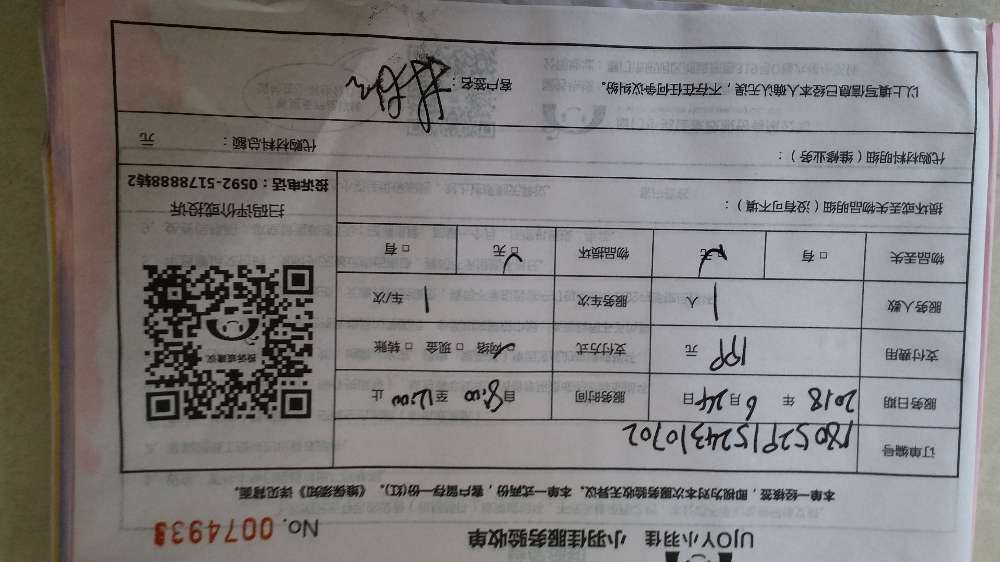 UJOY小羽佳 小羽佳服务验收单
No. 0074933
本单一经核签，即视为对本次服务验收无异议。本单一式两份，客户留存一份(红)。《维保须知》详见背面。
订单编号 180529152431070​2
服务日期 2018 年 6 月 24 日 服务时间 自 8:00 至 12:00 止
支付费用 199 元 支付方式 网络 □ 现金 □ 转账
服务人数 1 人 服务车次 1 车/次
物品丢失 □ 有 □ 无 物品损坏 □ 无 □ 有
损坏或丢失物品明细（没有可不填）：
投诉或建议
扫码评价或投诉
投诉电话：0592-5178888转2
代购材料明细（维修业务）：
代购材料总额： 元
以上填写信息已经本人确认无误，不存在任何争议纠纷。
客户签名：